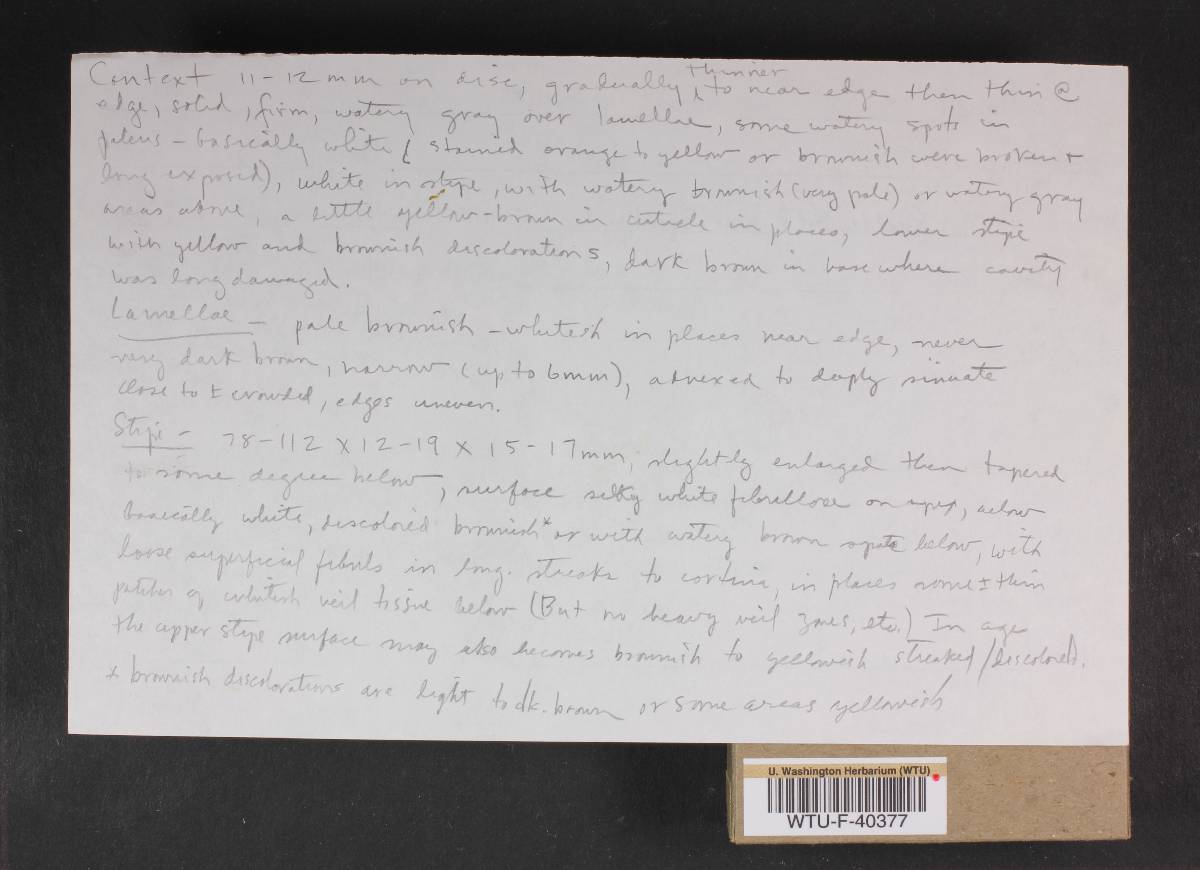 Context 11-12 mm on disc, gradually thinner to near edge then thin @
edge, solid, firm, watery gray over lamellae, some watery spots in
pileus - basically white (stained orange to yellow or brownish were broken +
long exposed), white in stipe, with watery brownish (very pale) or watery gray
areas above, a little yellow-brown in cuticle in places, lower stipe
with yellow and brownish discolorations, dark brown in base where cavity
was long damaged.
Lamellae - pale brownish - whitish in places near edge, never
very dark brown, narrow (up to 6mm), adnexed to deeply sinuate
close to ± crowded, edges uneven.
Stipe - 78-112 x 12-19 x 15-17mm, slightly enlarged then tapered
to some degree below, surface silky white fibrillose on apex, below
basically white, discolored brownish* or with watery brown spots below, with
loose superficial fibrils in long. streaks to cortina, in places some ± thin
patches of whitish veil tissue below (But no heavy veil zones, etc.) In age
the upper stipe surface may also becomes brownish to yellowish streaked/discolored.
* brownish discolorations are light to dk. brown or some areas yellowish
U. Washington Herbarium (WTU)
WTU-F-40377